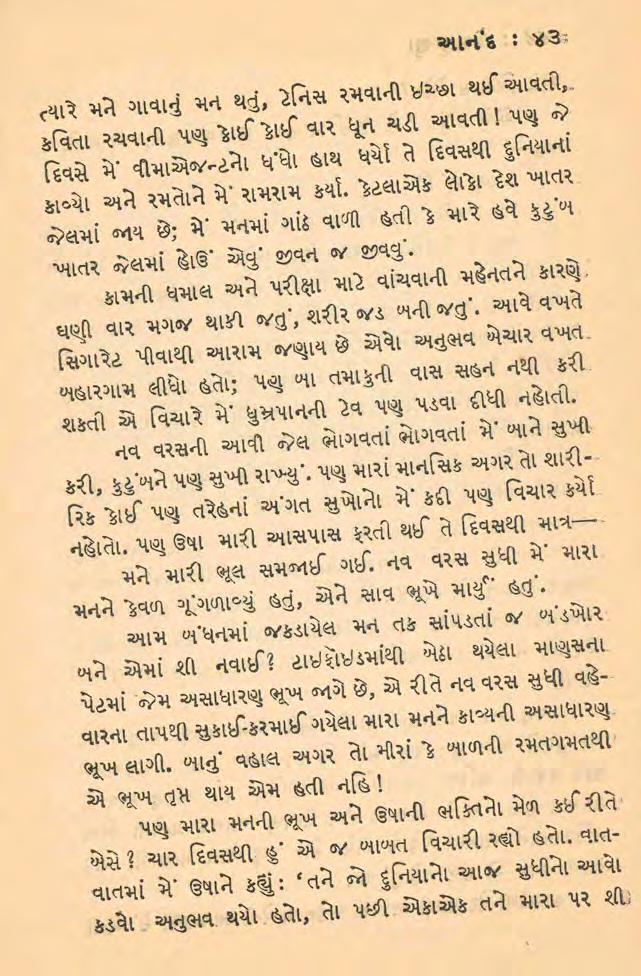 આનંદ : ૪૩
ત્યારે મને ગાવાનું મન થતું, ટેનિસ રમવાની ઇચ્છા થઈ આવતી,
કવિતા રચવાની પણ કોઈ કોઈ વાર ધૂન ચડી આવતી! પણ જે
દિવસે મેં વીમાએજન્ટનો ધંધો હાથ ધર્યો તે દિવસથી દુનિયાનાં
કાવ્યો અને રમતોને મેં રામરામ કર્યા. કેટલાએક લોકો દેશ ખાતર
જેલમાં જાય છે; મેં મનમાં ગાંઠ વાળી હતી કે મારે હવે કુટુંબ
ખાતર જેલમાં હોઉં એવું જીવન જ જીવવું.
કામની ધમાલ અને પરીક્ષા માટે વાંચવાની મહેનતને કારણે
ઘણી વાર મગજ થાકી જતું, શરીર જડ બની જતું. આવે વખતે
સિગારેટ પીવાથી આરામ જણાય છે એવો અનુભવ બેચાર વખત
બહારગામ લીધો હતો; પણ બા તમાકુની વાસ સહન નથી કરી
શકતી એ વિચારે મેં ધુમ્રપાનની ટેવ પણ પડવા દીધી નહોતી.
નવ વરસની આવી જેલ ભોગવતાં ભોગવતાં મેં બાને સુખી
કરી, કુટુંબને પણ સુખી રાખ્યું. પણ મારાં માનસિક અગર તો શારી-
રિક કોઈ પણ તરેહનાં અંગત સુખોનો મેં કદી પણ વિચાર કર્યો
નહોતો. પણ ઉષા મારી આસપાસ ફરતી થઈ તે દિવસથી માત્ર—
મને મારી ભૂલ સમજાઈ ગઈ. નવ વરસ સુધી મેં મારા
મનને કેવળ ગૂંગળાવ્યું હતું, એને સાવ ભૂખે માર્યું હતું.
આમ બંધનમાં જકડાયેલ મન તક સાંપડતાં જ બંડખોર
બને એમાં શી નવાઈ? ટાઇફૉઇડમાંથી બેઠા થયેલા માણસના
પેટમાં જેમ અસાધારણ ભૂખ જાગે છે, એ રીતે નવ વરસ સુધી વહે-
વારના તાપથી સુકાઈ-કરમાઈ ગયેલા મારા મનને કાવ્યની અસાધારણ
ભૂખ લાગી. બાનું વહાલ અગર તો મીરાં કે બાળની રમતગમતથી
એ ભૂખ તૃપ્ત થાય એમ હતી નહિ!
પણ મારા મનની ભૂખ અને ઉષાની ભક્તિનો મેળ કઈ રીતે
બેસે? ચાર દિવસથી હું એ જ બાબત વિચારી રહ્યો હતો. વાત-
વાતમાં મેં ઉષાને કહ્યું: ‘તને જો દુનિયાનો આજ સુધીનો આવો
કડવો અનુભવ થયો હતો, તો પછી એકાએક તને મારા પર શી